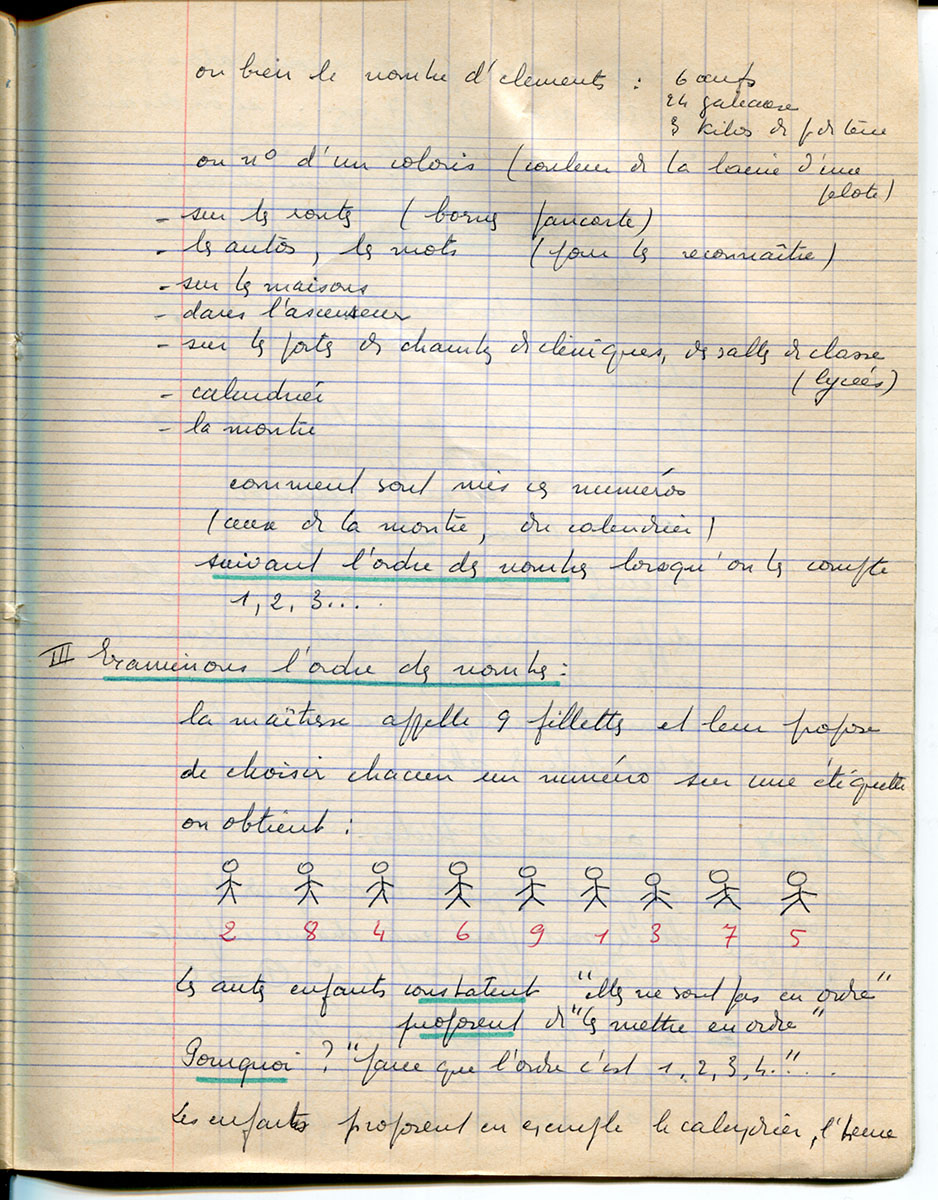 ou bien le nombre d'éléments : 6 oeufs
24 gâteaux
3 kilos de p de terre
ou n° d'un coloris (couleur de la laine d'une
pelote)
- sur les routes ( bornes pancarte)
- les autos, les mots (pour les reconnaître)
- sur les maisons
- dans l'ascenseur
- sur les portes des chambres de cliniques, des salles de classe
(lycées)
- calendrier
- la montre
comment sont mis ces numéros
(ceux de la montre, du calendrier)
suivant l'ordre des nombres lorsqu'on les compte
1, 2, 3....
III Examinons l'ordre des nombres :
la maîtresse appelle 9 fillettes et leur propose
de choisir chacun un numéro sur une étiquette
on obtient :
2 8 4 6 9 1 3 7 5
Les autres enfants constatent "elles ne sont pas en ordre"
proposent de "les mettre en ordre"
Pourquoi ? "parce que l'ordre c'est 1, 2, 3, 4."...
Les enfants proposent en exemple le calendrier, l'